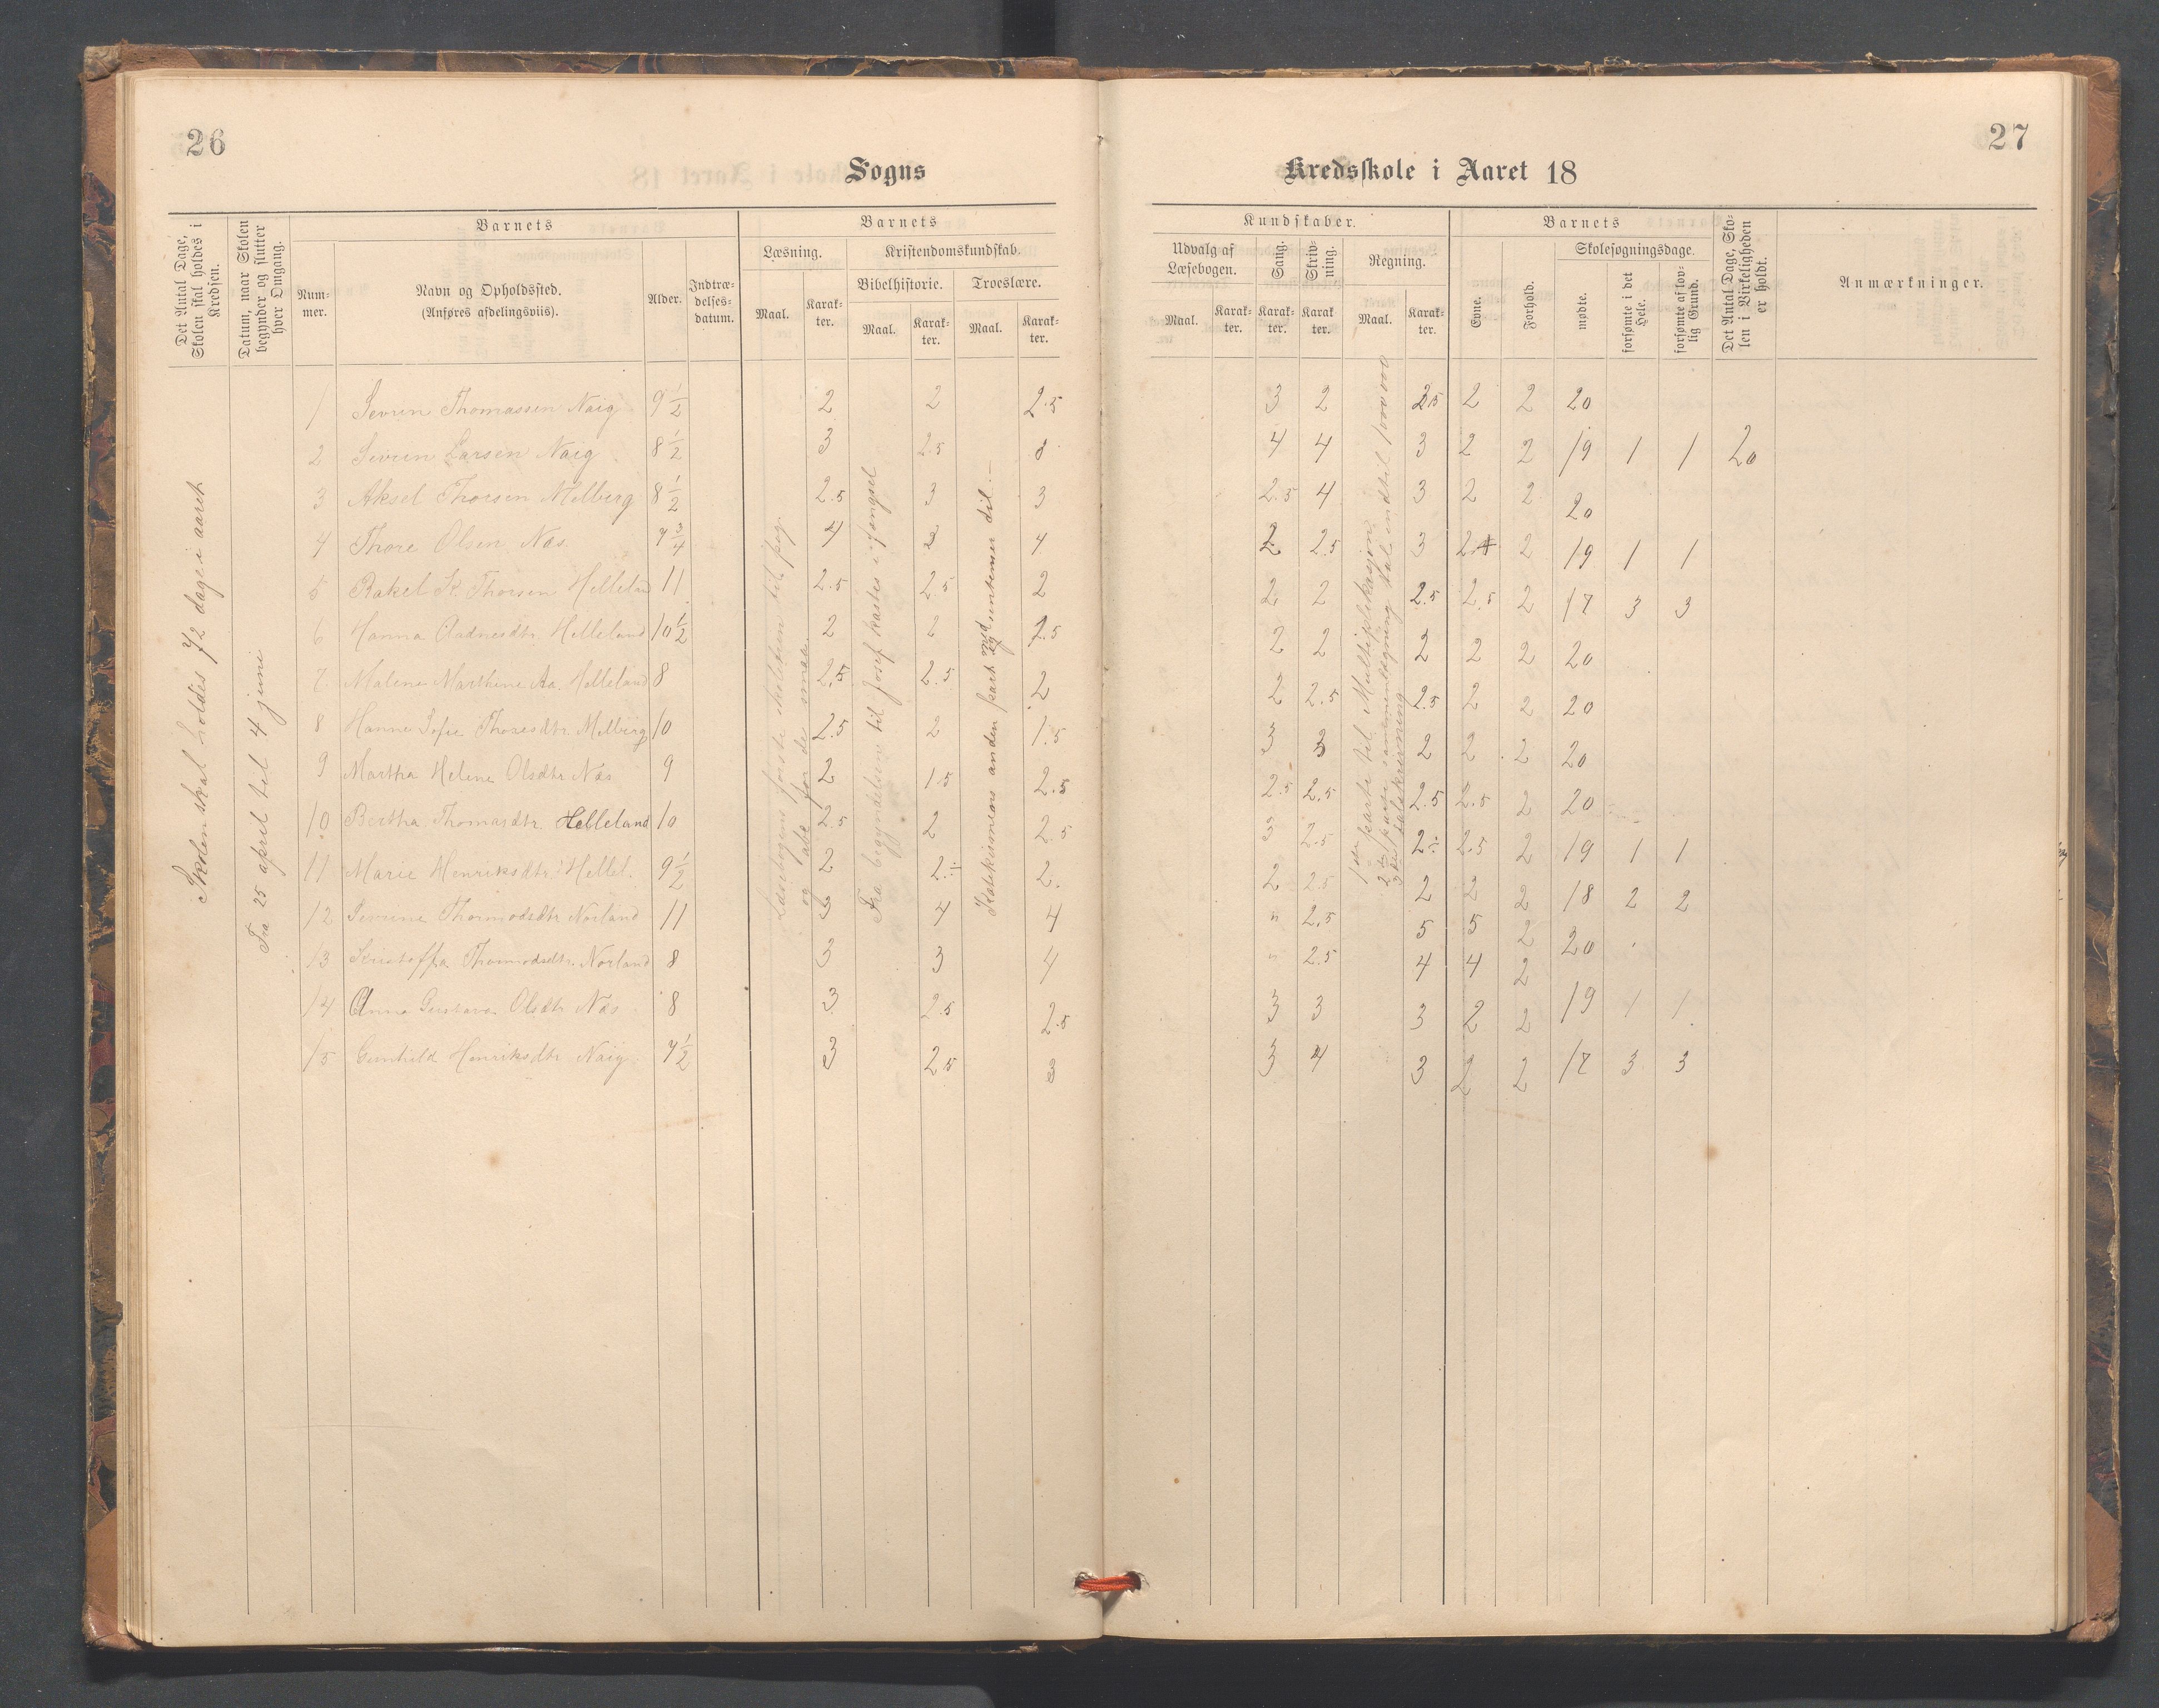 26
27
Sogns
Kredsskole i Aaret 18
Det Antal Dage, Skolen skal holdes i Kredsen.
Datum, naar Skolen begynder og slutter hver Omgang.
Barnets
Num-mer.
Navn og Opholdssted.
(Anføres afdelingsviis).
Alder.
Indtræ-delses-datum.
Barnets
Læsning.
Maal.
Karak-ter.
Kristendomskundskab.
Bibelhistorie.
Maal.
Karak-ter.
Troeslære.
Maal.
Karak-ter.
Kundskaber.
Udvalg af Læsebogen.
Maal.
Karak-ter.
Sang.
Karak-ter.
Skriv-ning.
Karak-ter.
Regning.
Maal.
Karak-ter.
Barnets
Evne.
Forhold.
Skolesøgningsdage.
mødte.
forsømte i det Hele.
forsømte af lov-lig Grund.
Det Antal Dage, Sko-len i Virkeligheden er holdt.
Anmærkninger.
Skolen skal holdes 72 dage i aaret
Fra 25 april til 4 juni
Fra begyndelsen til Josef kastes i fængsel
anden part med
1000 000
1 Sevrin Thomassen Naig 9 1/2 2 2 2.5 3 2 2.5 2 2 20
2 Sevrin Larsen Naig 8 1/2 3 2.5 4 4 3 2 2 19 1 1 20
3 Aksel Thorsen Melberg 8 1/2 2.5 3 3 2.5 4 3 2 2 20
4 Thore Olsen Næs 7 3/4 4 3 4 2 2.5 3 2 19 1 1
5 Rakel K. Thorsen Helleland 11 2.5 2.5 2 2 2 2.5 2.5 2 17 3 3
6 Hanna Aadnesdtr. Helleland 10 1/2 2 2 2 2 2 2 2 20
7 Malene Marthine Aa. Helleland 8 2.5 2.5 2 2 2.5 2.5 2 2 20
8 Hanne Sofie Thoresdtr. Melberg 10 2.5 2 1.5 3 3 2 2 2 20
9 Martha Helene Olsdtr Næs 9 2 1.5 2.5 2.5 2.5 2.5 2.5 2 20
10 Bertha Thomasdtr. Helleland 10 2.5 2 2.5 3 2.5 2 2.5 2 19 1 1
11 Marie Henriksdtr. Hellel. 9 1/2 2 2 2. 2 2.5 2 2 2 18 2 2
12 Sevrine Thormodsdtr Norland 11 3 4 4 " 2.5 5 5 2 20
13 Kristoffa Thormodsdtr. Norland 8 3 3 4 " 2.5 4 4 2
14 Anna Gustava Olsdtr Næs 8 3 2.5 2.5 3 3 3 2 2 19 1 1
15 Gunhild Henriksdtr Naig 7 1/2 3 2.5 3 3 4 3 2 2 17 3 3